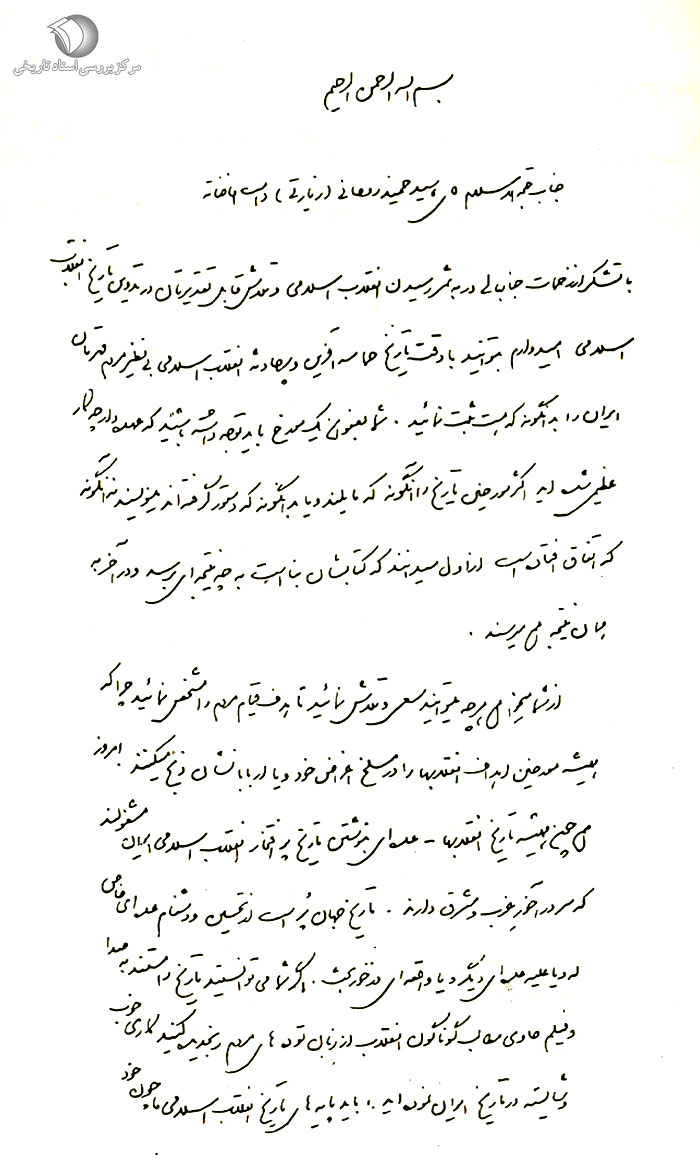 مرکز بررسی اسناد تاریخی
بسم الله الرحمن الرحیم
جناب حجةالاسلام آقای سید حمید روحانی (زیارتی) دامت افاضاته
با تشکر از زحمات جنابعالی در به ثمر رسیدن انقلاب اسلامی و تلاش قابل تقدیرتان در تدوین تاریخ انقلاب
اسلامی امیدوارم بتوانید با دقت تاریخ حماسه آفرین و پر حادثه انقلاب اسلامی بی نظیر مردم قهرمان
ایران را بدانگونه که هست ثبت نمائید . شما بعنوان یک مورخ باید توجه داشته باشید که عهده دار چه کار
عظیمی شده اید اکثر مورخین تاریخ را آنگونه که مایلند و یا بدانگونه که دستور گرفته اند مینویسند نه آنگونه
که اتفاق افتاده است از اول میدانند که کتابشان بنا است به چه نتیجه ای برسد و در آخر به
همان نتیجه هم میرسند .
از شما میخواهم هر چه میتوانید سعی و تلاش نمائید تا هدف قیام مردم را مشخص نمائید چرا که
همیشه مورخین اهداف انقلابها را در مسلخ اغراض خود و یا اربابانشان ذبح میکنند امروز
هم چون همیشه تاریخ انقلابها - عده ای به نوشتن تاریخ پر افتخار انقلاب اسلامی ایران مشغولند
که سر در آخور غرب و شرق دارند . تاریخ جهان پُر است از تحسین و دشنام عده ای خاص
له و یا علیه عده ای دیگر و یا واقعه ای در خور بحث . اگر شما می توانستید تاریخ را مستند به صدا
و فیلم حاوی مطالب گوناگون انقلاب از زبان توده های مردم رنجدیده کنید کاری خوب
و شایسته در تاریخ ایران نموده اید ، باید پایه های تاریخ انقلاب اسلامی ما چون خود